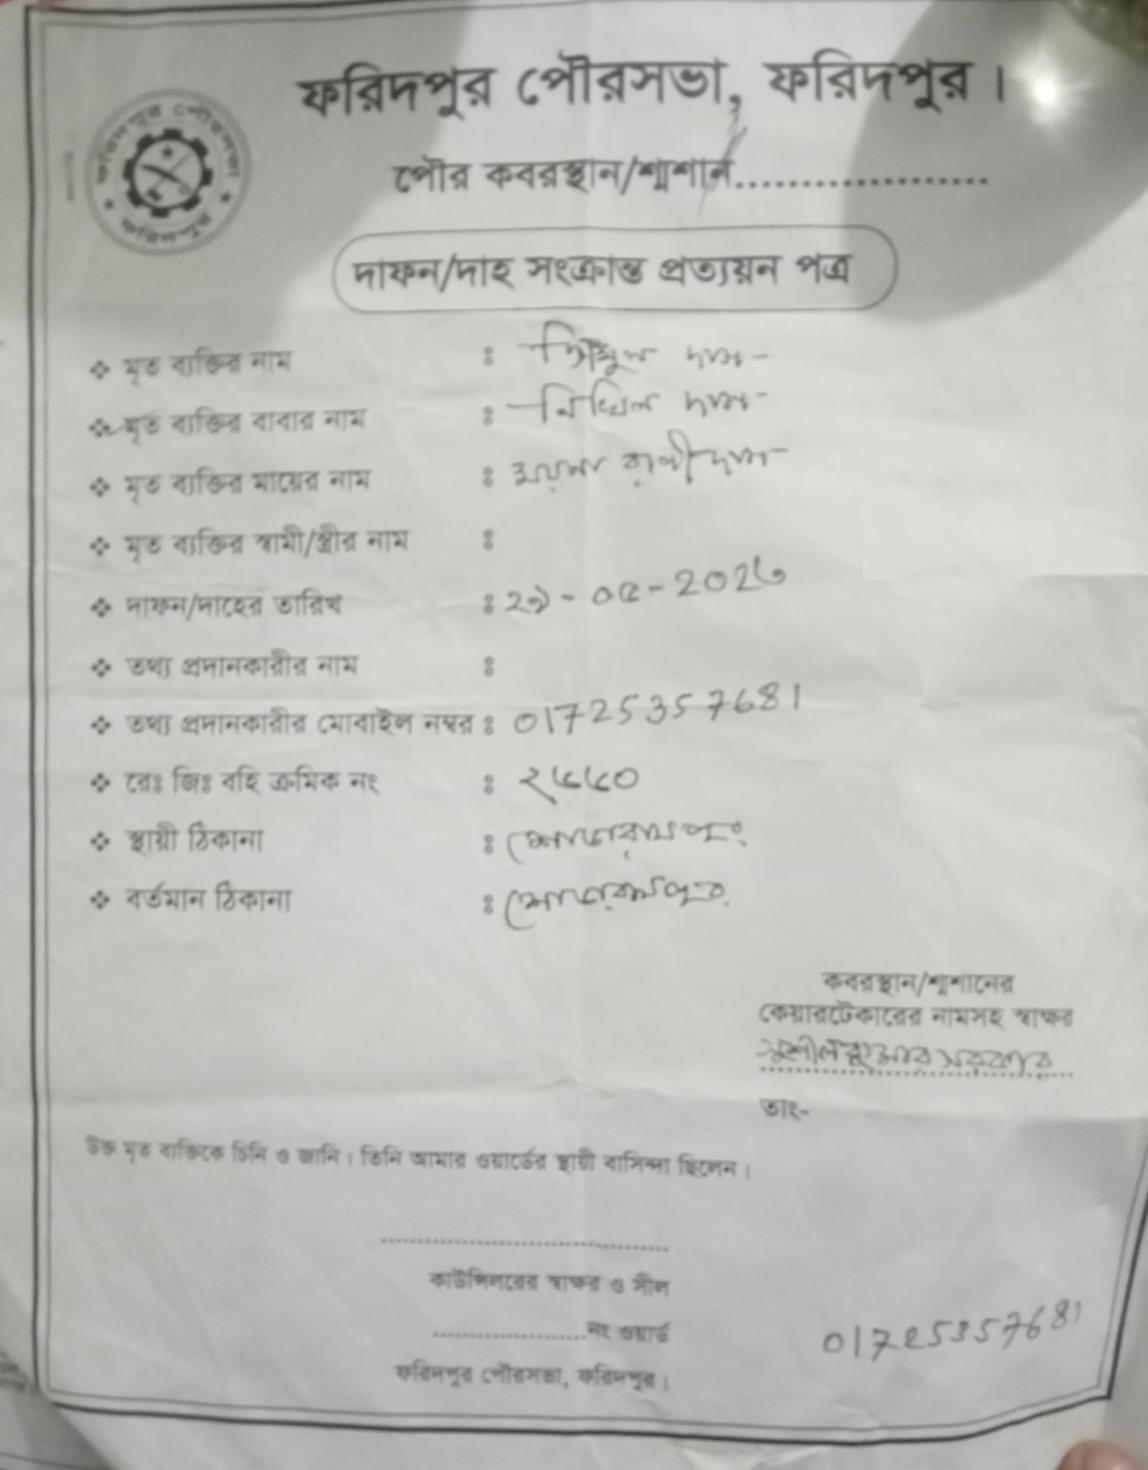 ফরিদপুর পৌরসভা, ফরিদপুর।
পৌর কবরস্থান/শ্মশান....................
দাফন/দাহ সংক্রান্ত প্রত্যয়ন পত্র
ফরিদপুর পৌরসভা
ফরিদপুর
❖ মৃত ব্যক্তির নাম : দাস
❖ মৃত ব্যক্তির বাবার নাম : নিখিল দাস
❖ মৃত ব্যক্তির মায়ের নাম : রানী দাস
❖ মৃত ব্যক্তির স্বামী/স্ত্রীর নাম :
❖ দাফন/দাহের তারিখ :
❖ তথ্য প্রদানকারীর নাম :
❖ তথ্য প্রদানকারীর মোবাইল নম্বর : 01725357681
❖ রেঃ জিঃ বহি ক্রমিক নং :
❖ স্থায়ী ঠিকানা :
❖ বর্তমান ঠিকানা :
কবরস্থান/শ্মশানের
কেয়ারটেকারের নামসহ স্বাক্ষর
সুশীল কুমার সরকার
তাং-
উক্ত মৃত ব্যক্তিকে চিনি ও জানি। তিনি আমার ওয়ার্ডের স্থায়ী বাসিন্দা ছিলেন।
কাউন্সিলরের স্বাক্ষর ও সীল
....................নং ওয়ার্ড
ফরিদপুর পৌরসভা, ফরিদপুর।
01725357681